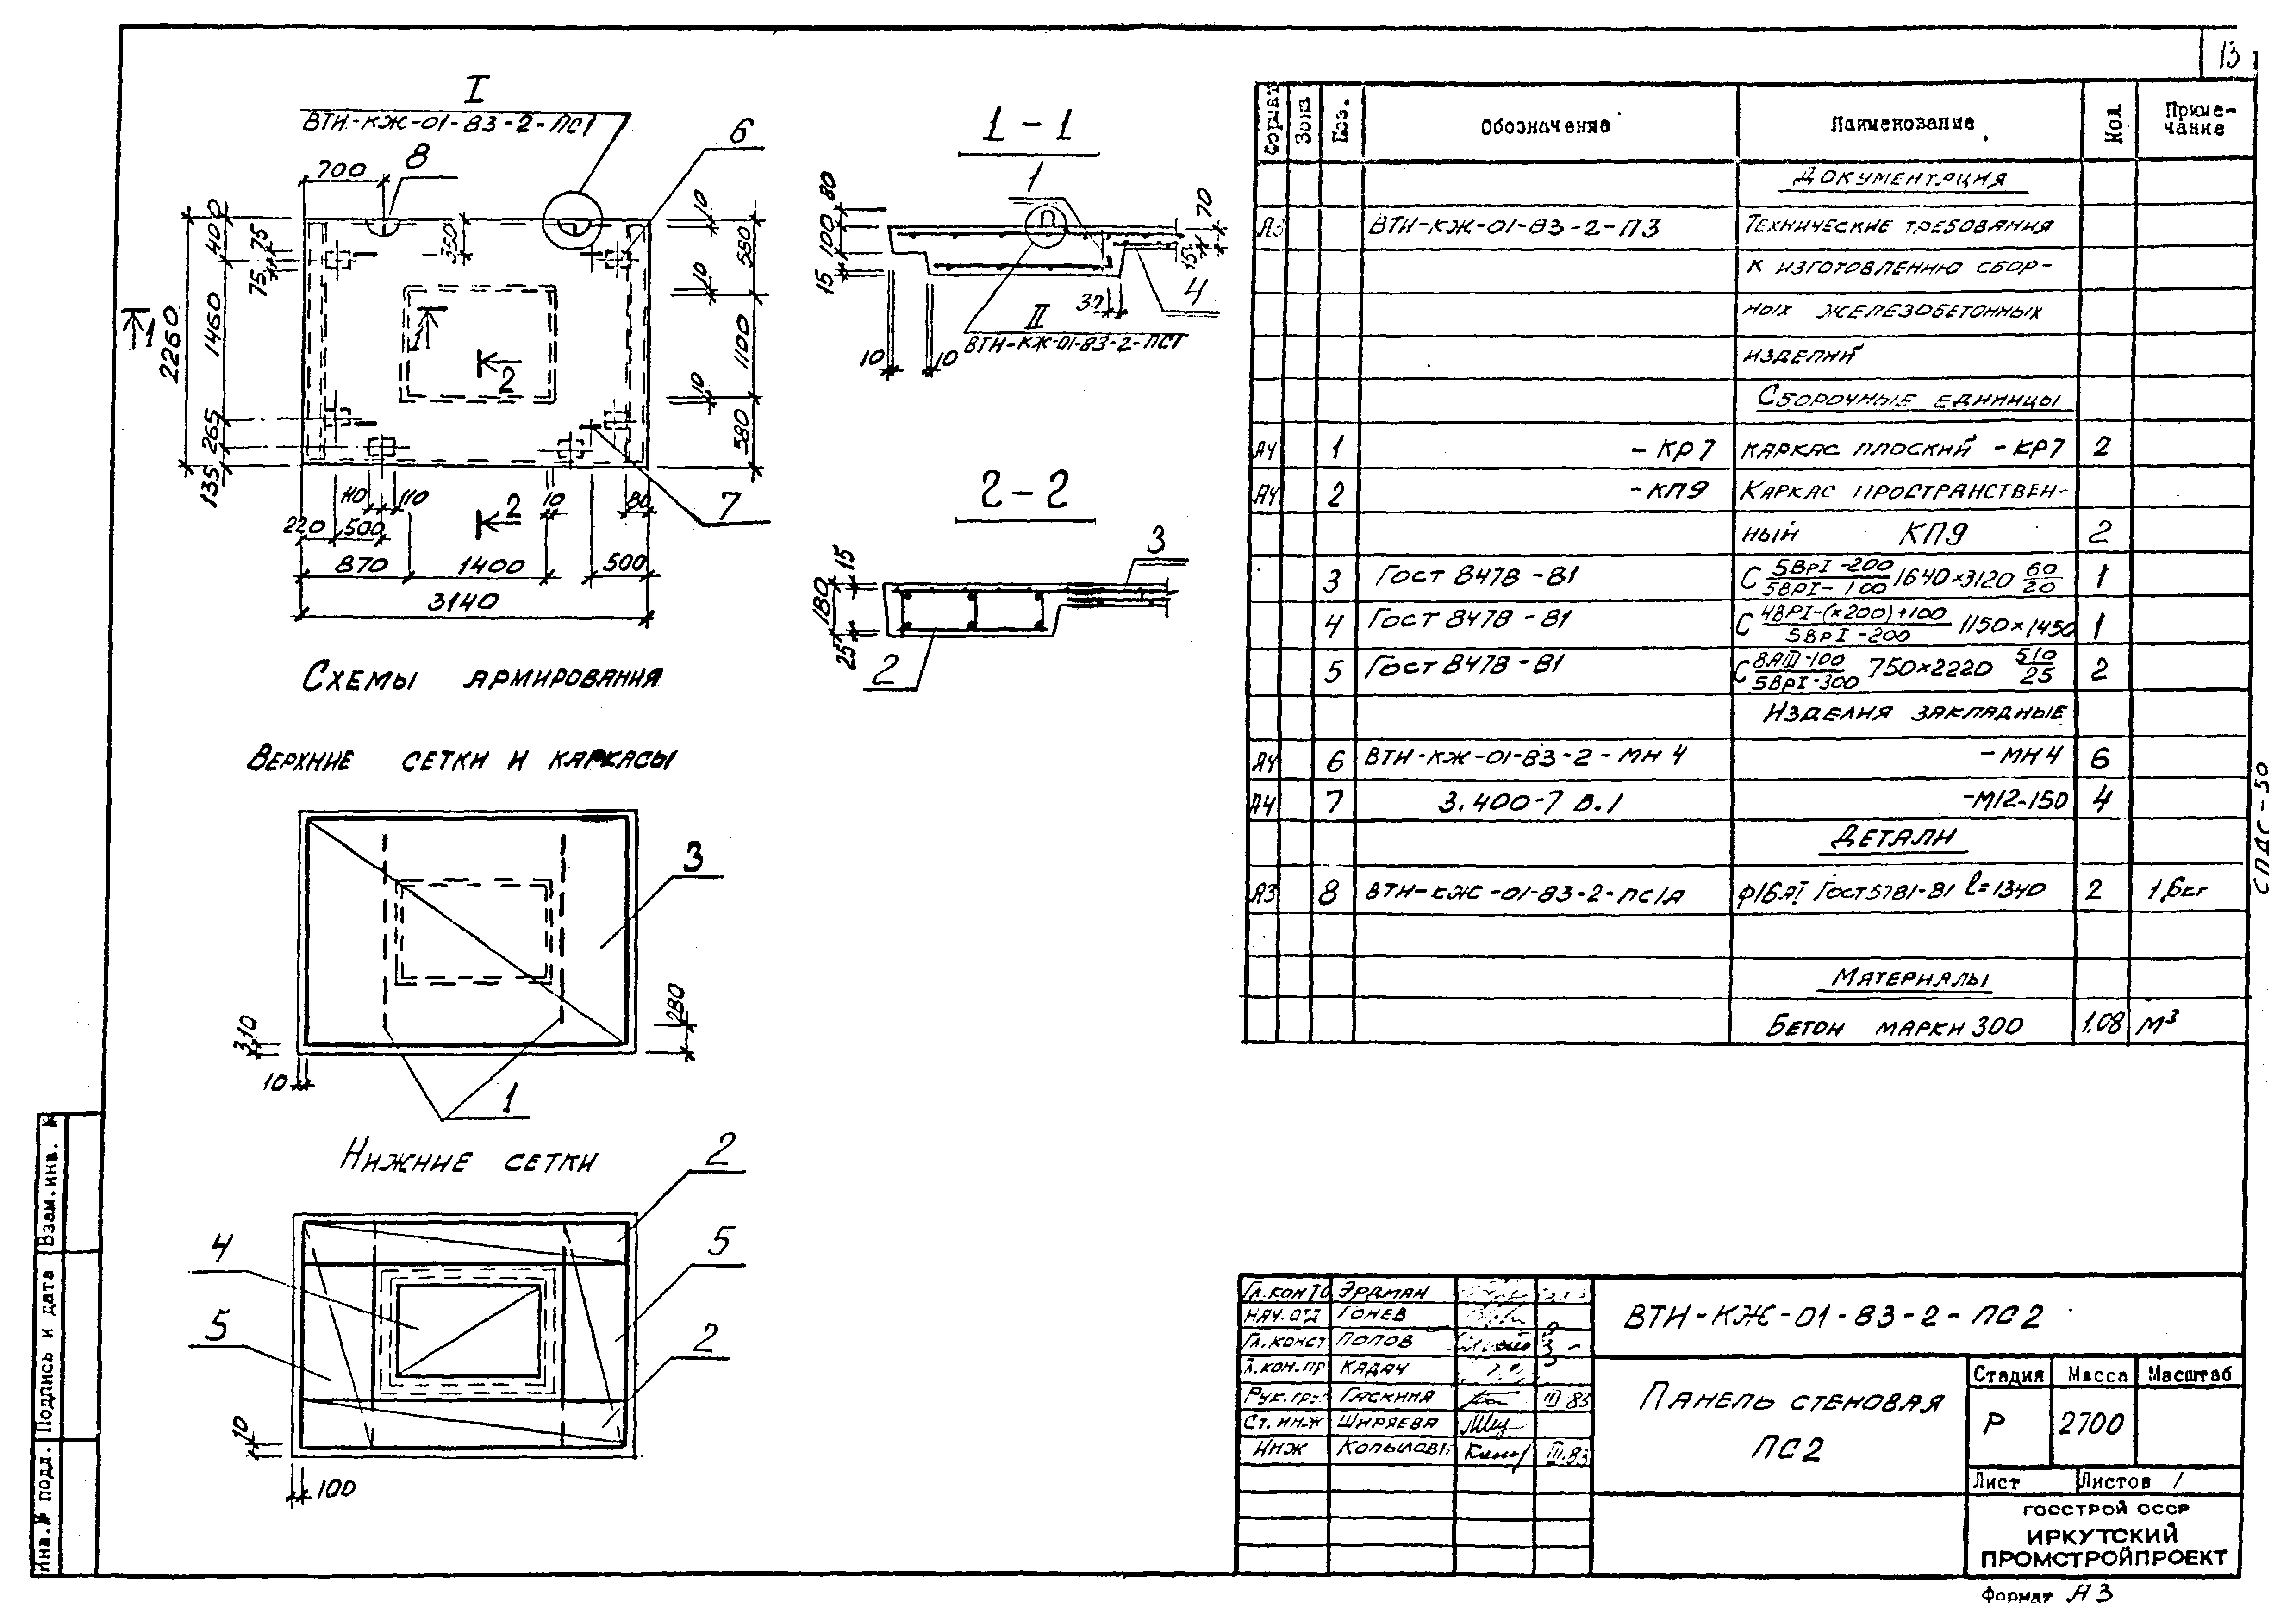 13
I
ВТИ-КЖ-01-83-2-ПС1
8
6
700
40
75
75
1460
2260
265
135
350
10
580
10
1100
10
580
1
1
2
2
7
110
110
10
80
220
500
870
1400
500
3140
1-1
1
80
100
15
70
15
32
4
II
ВТИ-КЖ-01-83-2-ПС1
10
10
2-2
3
15
180
25
2
Схемы армирования
Верхние сетки и каркасы
3
280
310
10
1
Нижние сетки
2
4
5
5
2
10
100
Формат Зона Поз. Обозначение Наименование Кол Приме-
чание
Документация
А3 ВТИ-КЖ-01-83-2-ПЗ Технические требования
к изготовлению сбор-
ных железобетонных
изделий
Сборочные единицы
А4 1 -КР7 каркас плоский -КР7 2
А4 2 -КП9 Каркас пространствен-
ный КП9 2
3 Гост 8478-81 С 5ВрI-200/5ВрI-100 1640×3120 60/20 1
4 Гост 8478-81 С 4ВрI-(×200)+100/5ВрI-200 1150×1450 1
5 Гост 8478-81 С 8АIII-100/5ВрI-300 750×2220 510/25 2
Изделия закладные
А4 6 ВТИ-КЖ-01-83-2-МН4 -МН4 6
А4 7 3.400-7 в.1 -М12-150 4
Детали
А3 8 ВТИ-КЖ-01-83-2-ПС1А ф16АI Гост5781-81 l=1340 2 1,6кг
Материалы
Бетон марки 300 1.08 м³
СПДС-50
Взам.инв. №
Подпись и дата
Инв.№ подл.
Гл.кон ТО Эрдман
Нач.отд Гонев
Гл.конст Попов
Гл.кон.пр Кадач
Рук.гр. Гаскина III 83
Ст.инж Ширяева
Инж Копылова III.83
ВТИ-КЖ-01-83-2-ПС2
Панель стеновая
ПС2
Стадия Масса Масштаб
Р 2700
Лист Листов 1
ГОССТРОЙ СССР
ИРКУТСКИЙ
ПРОМСТРОЙПРОЕКТ
Формат А3